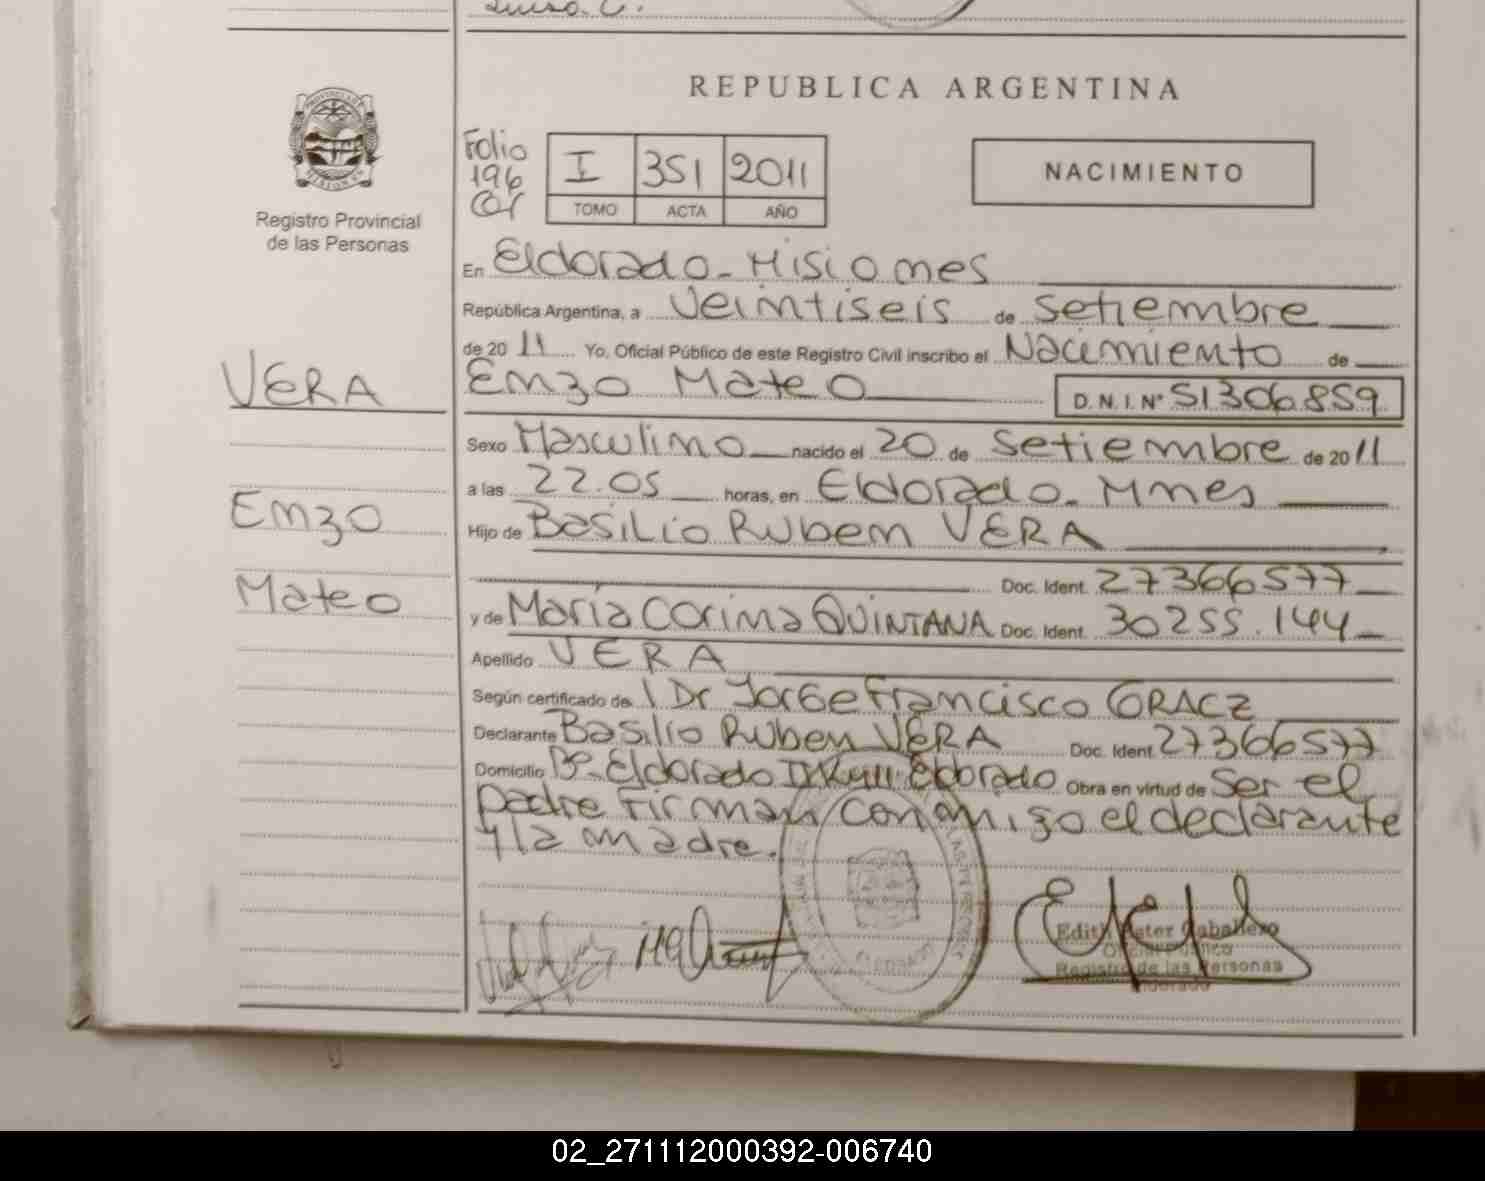 Luisa. C.
REPUBLICA ARGENTINA
PROVINCIA DE MISIONES
Registro Provincial
de las Personas
Folio
196
I 351 2011
TOMO ACTA AÑO
NACIMIENTO
En Eldorado - Misiones
República Argentina, a Veintiseis de Setiembre
de 20 11 Yo, Oficial Público de este Registro Civil inscribo el Nacimiento de
VERA
Enzo Mateo D. N. I. N° 51306859
Sexo Masculino nacido el 20 de Setiembre de 20 11
a las 22.05 horas, en Eldorado - Mnes
Enzo
Hijo de Basilio Ruben VERA
Doc. Ident. 27366577
Mateo
y de María Corina QUINTANA Doc. Ident. 30255.144
Apellido VERA
Según certificado de Dr Jorge Francisco GRACZ
Declarante Basilio Ruben VERA Doc. Ident. 27366577
Domicilio Bº Eldorado Eldorado Obra en virtud de Ser el
padre Firman conmigo el declarante
y la madre.
Edith Ester Caballero
Oficial Público
Registro de las Personas
Eldorado
02_271112000392-006740